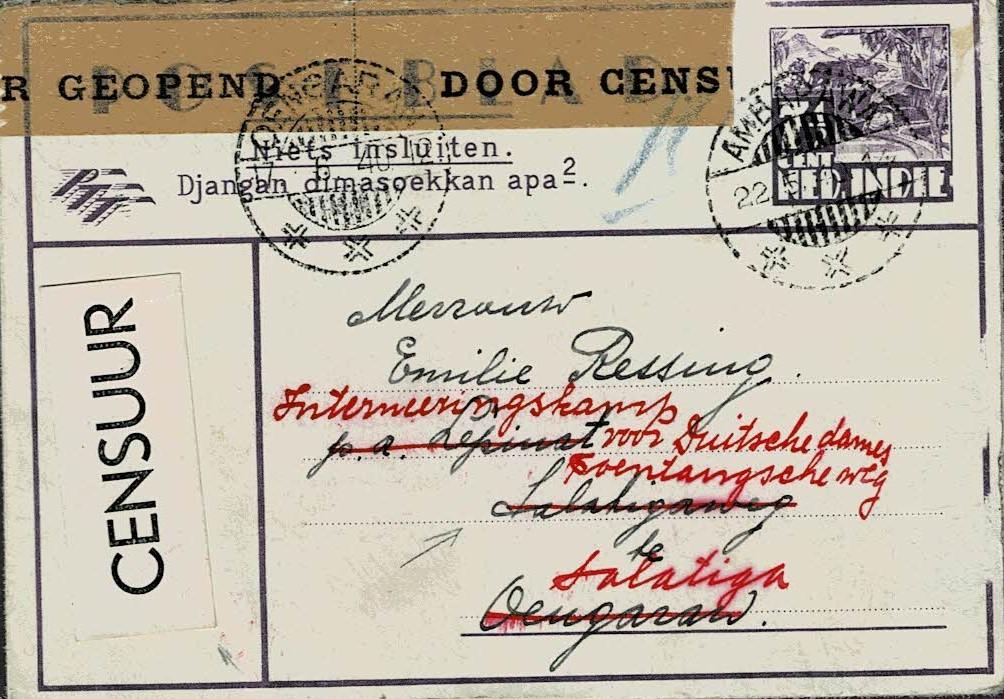 R GEOPEND DOOR CENSU
POSTBLAD
Niets insluiten.
Djangan dimasoekkan apa².
PTT
OENGARAN
AMBARAWA
22.5
CENT
NED. INDIE
CENSUUR
Mevrouw
Emilie Ressing.
Interneeringskamp
p. a. voor Duitsche dames
Toentangsche weg
Salatigaweg
te
Salatiga
Oengaran.